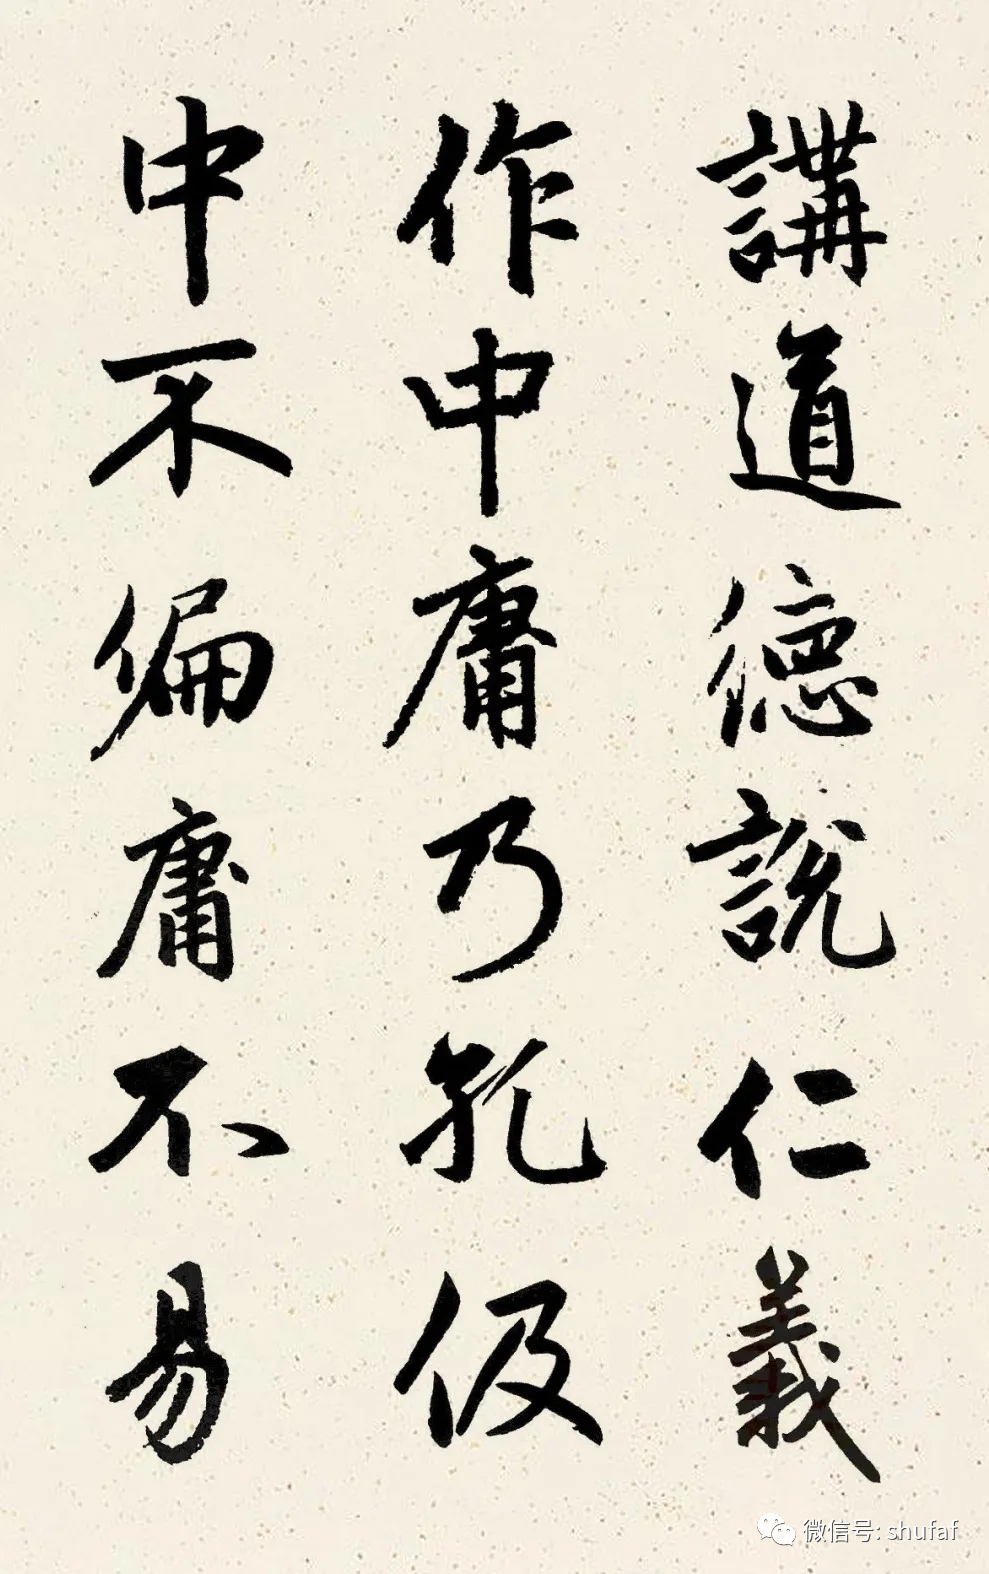 講道德說仁義
作中庸乃孔伋
中不偏庸不易
微信号: shufaf